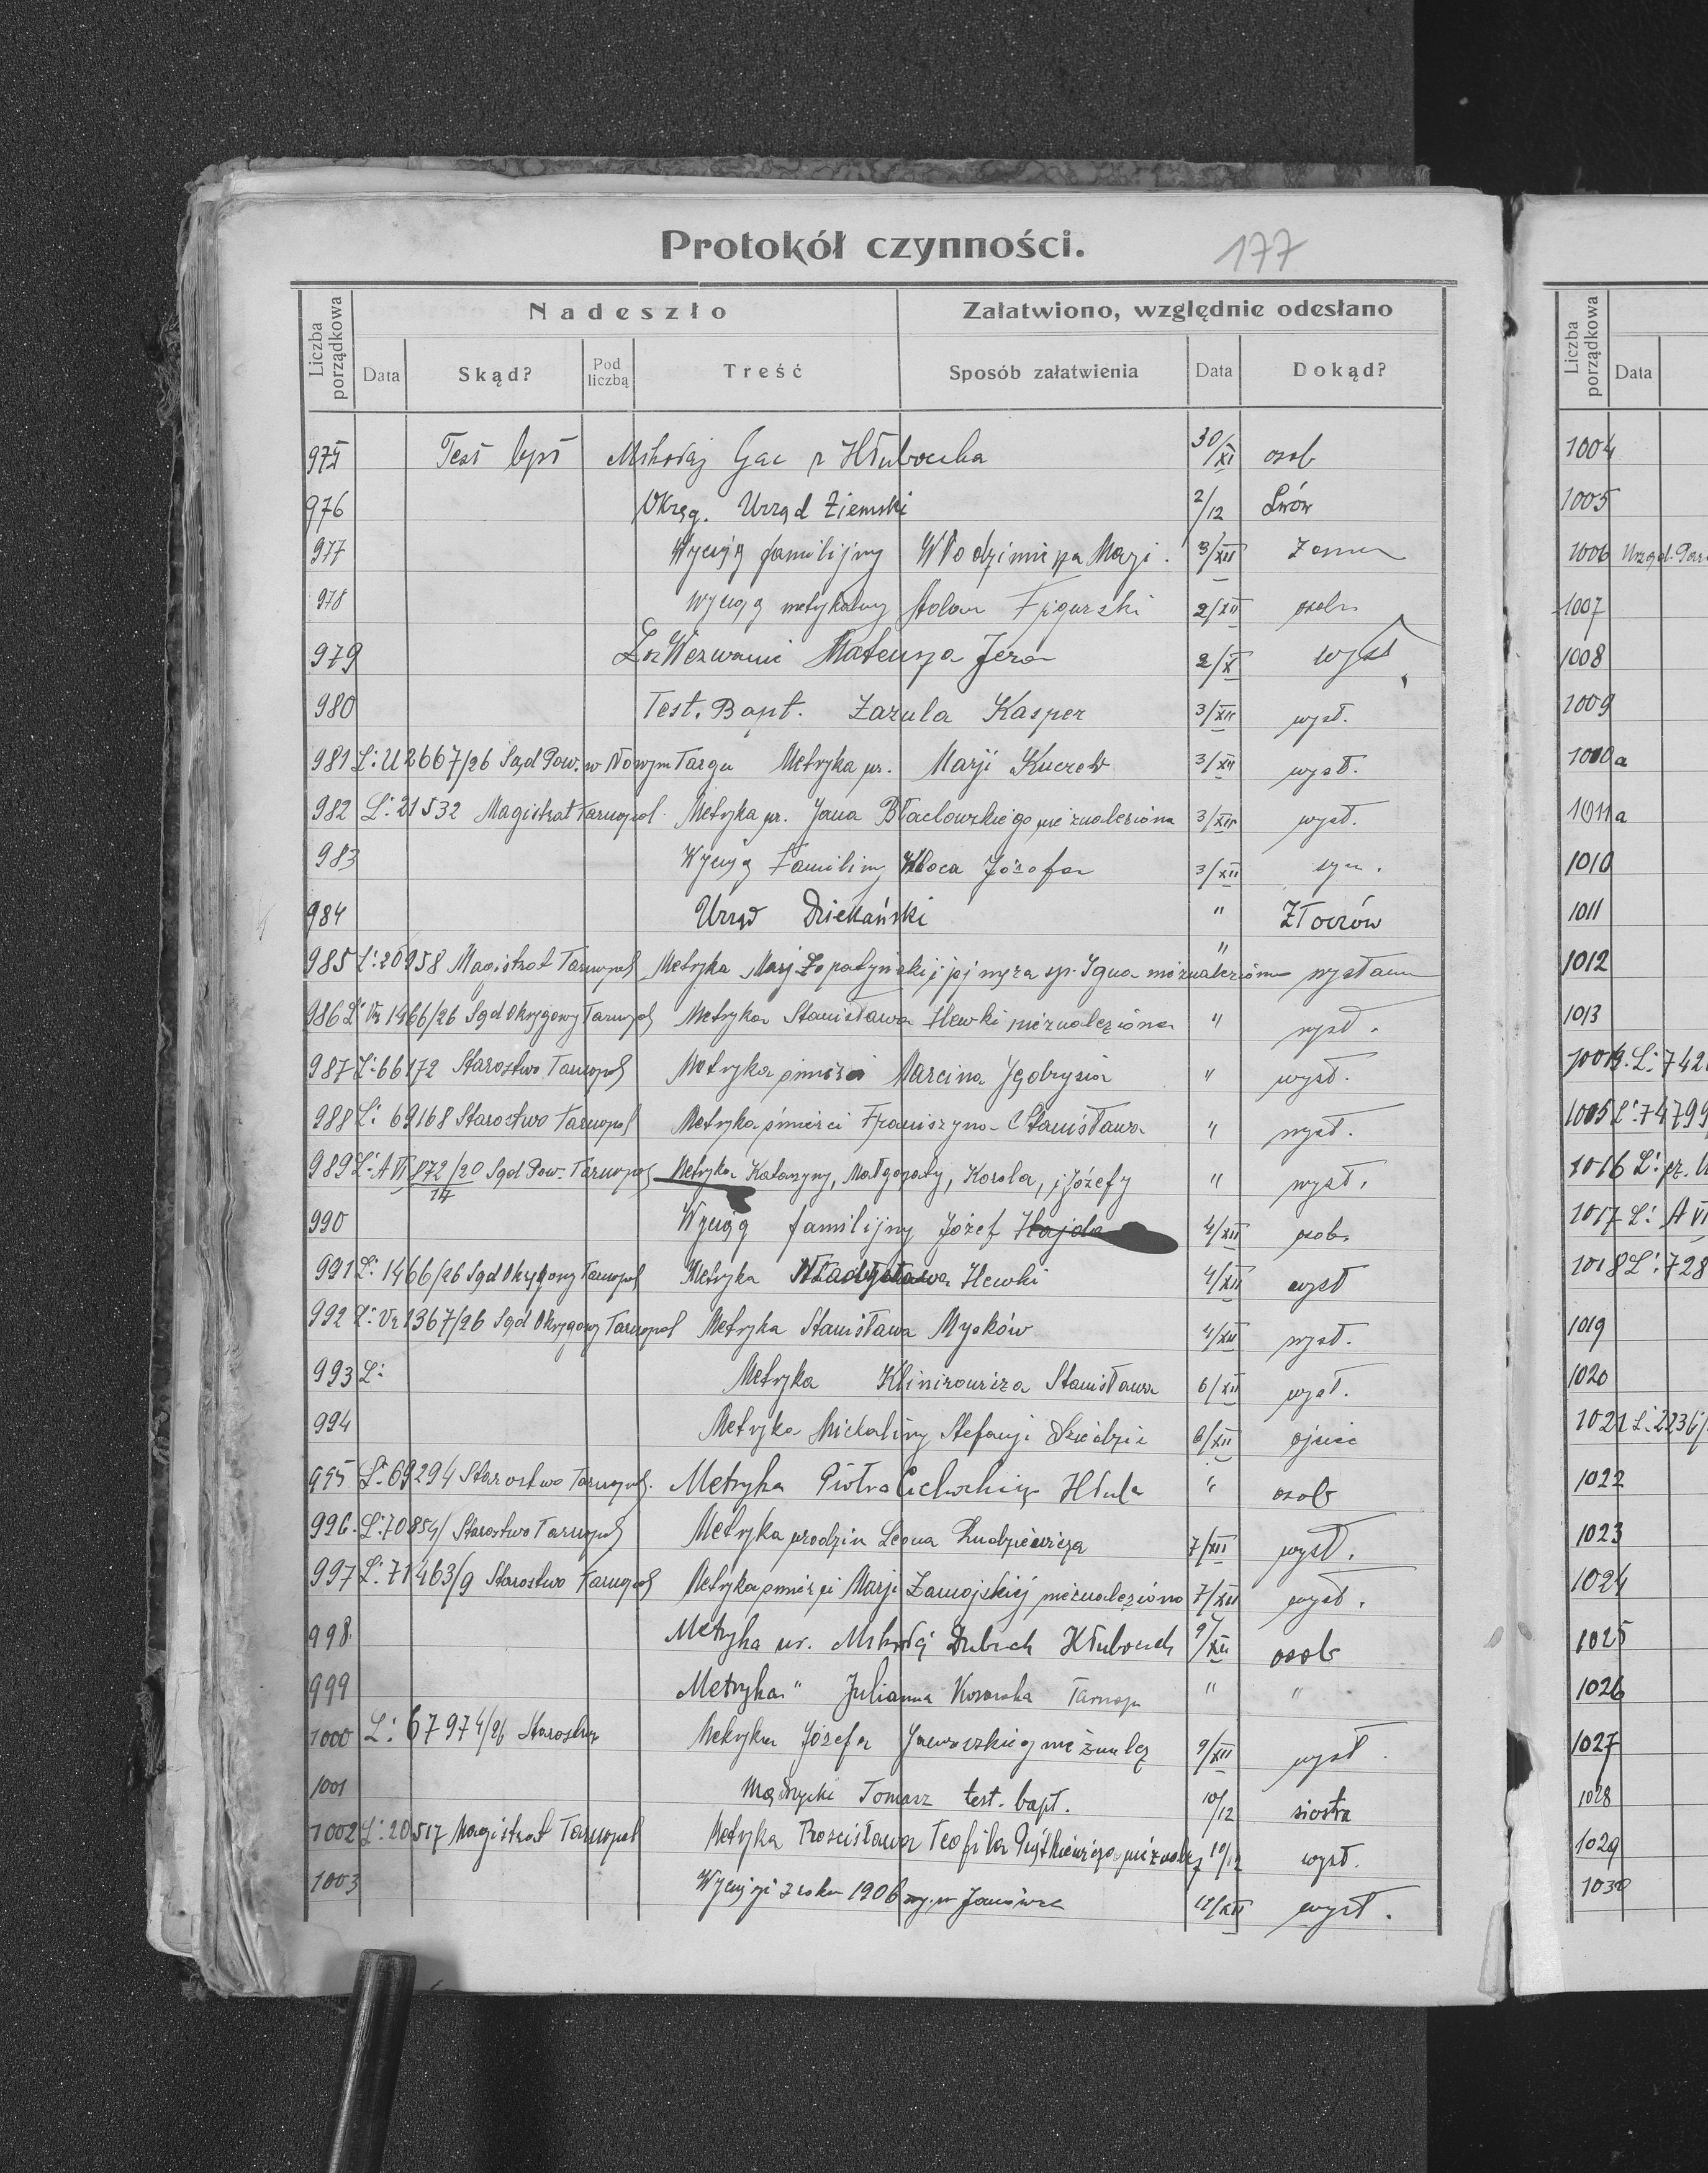 Protokół czynności. 177
Liczba porządkowa
Nadeszło
Załatwiono, względnie odesłano
Data Skąd? Pod liczbą Treść Sposób załatwienia Data Dokąd?
975 Test bpt Mikołaj Gac z Hłuboczka 30/XI osob
976 Okręg. Urząd Ziemski 2/12 Lwów
977 Wyciąg familijny Włodzimierza Marji 3/XII
978 Wyciąg metykalny Adam Figurski 2/XII osob.
979 Wezwanie Mateusza Jera 2/X wysł
980 Test. Bapt. Zazula Kasper 3/XII wysł.
981 L: U 2667/26 Sąd Pow. w Nowym Targu Metryka ur. Marji 3/XII wysł.
982 L: 21532 Magistrat Tarnopol. Metryka ur. Jana Błacłowskiego nieznaleziona 3/XII wysł.
983 Wyciąg Familiny Kloca Józefa 3/XII syn.
984 Urząd Dziekański " Złoczów
985 L: 20958 Magistrat Tarnopol Metryka Marj Łopatyńskij i jej męza sp. Igna nieznaleziono " wysłano
986 L: Vr 1466/26 Sąd Okręgowy Tarnopol Metryka Stanisława Hewki nieznaleziona " wysł.
987 L: 66172 Starostwo Tarnopol Metryka śmierci Marcina Jędrysia " wysł.
988 L: 69168 Starostwo Tarnopol Metryka śmierci Franiszyna Stanisława " wysł.
989 L: A VI 872/20 14 Sąd Pow. Tarnopol Metryka Katarzyny, Małgorzaty, Karola, i Józefy " wysł.
990 Wyciąg familijny Józef Hajda 4/XII osob.
991 L: 1466/26 Sąd Okręgowy Tarnopol Metryka Władysława Hewki 4/XII wysł
992 L: Vr 1367/26 Sąd Okręgowy Tarnopol Metryka Stanisława Myśków 4/XII wysł.
993 L: Metryka Klimowicza Stanisława 6/XII wysł.
994 Metryka Michaliny Stefanji 6/XII ojciec
995 L: 69294 Starostwo Tarnopol. Metryka Piotra Hłub " osob
996. L: 70854/ Starostwo Tarnopol Metryka urodzin Leona Rudziewicza 7/XII wysł.
997 L: 71463/9 Starostwo Tarnopol Metryka śmierci Marji Zamojskiej nieznaleziono 7/XII wysł.
998. Metryka ur. Mikołaj Dubich Hłubocz 9/XII osob
999 Metryka " Julianna Kosowska Tarnop " "
1000 L: 67974/26 Starostw Metryka Józefa Jaworskieg nie znalez 9/XII wysł.
1001 Mądrycki Tomasz test. bapt. 10/12 siostra
1002 L: 20517 Magistrat Tarnopol Metryka Rościsława Teofila Piątkiewicza nieznalez 10/12 wysł.
1003 Wyciągi z roku 1906 Janówce 11/XII wysł.
Liczba porządkowa
Data
1004
1005
1006 Urząd. Par
1007
1008
1009
1010a
1011a
1010
1011
1012
1013
1014. L: 742
1015 L: 74799
1016 L: pr.
1017 L: A VI
1018 L: 728
1019
1020
1021 L: 2236/
1022
1023
1024
1025
1026
1027
1028
1029
1030